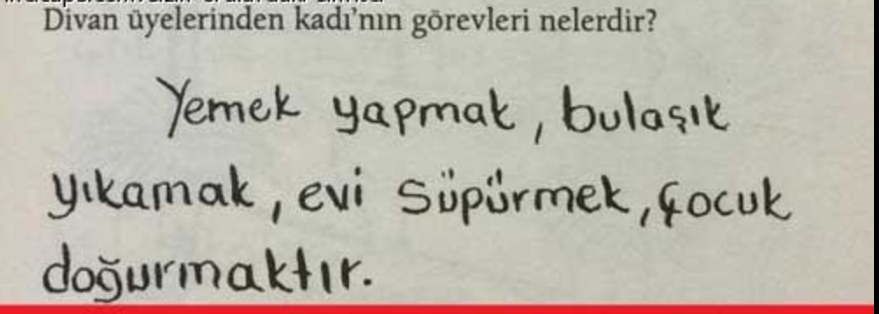 Divan üyelerinden kadı'nın görevleri nelerdir?
Yemek yapmak, bulaşık
yıkamak, evi süpürmek, çocuk
doğurmaktır.